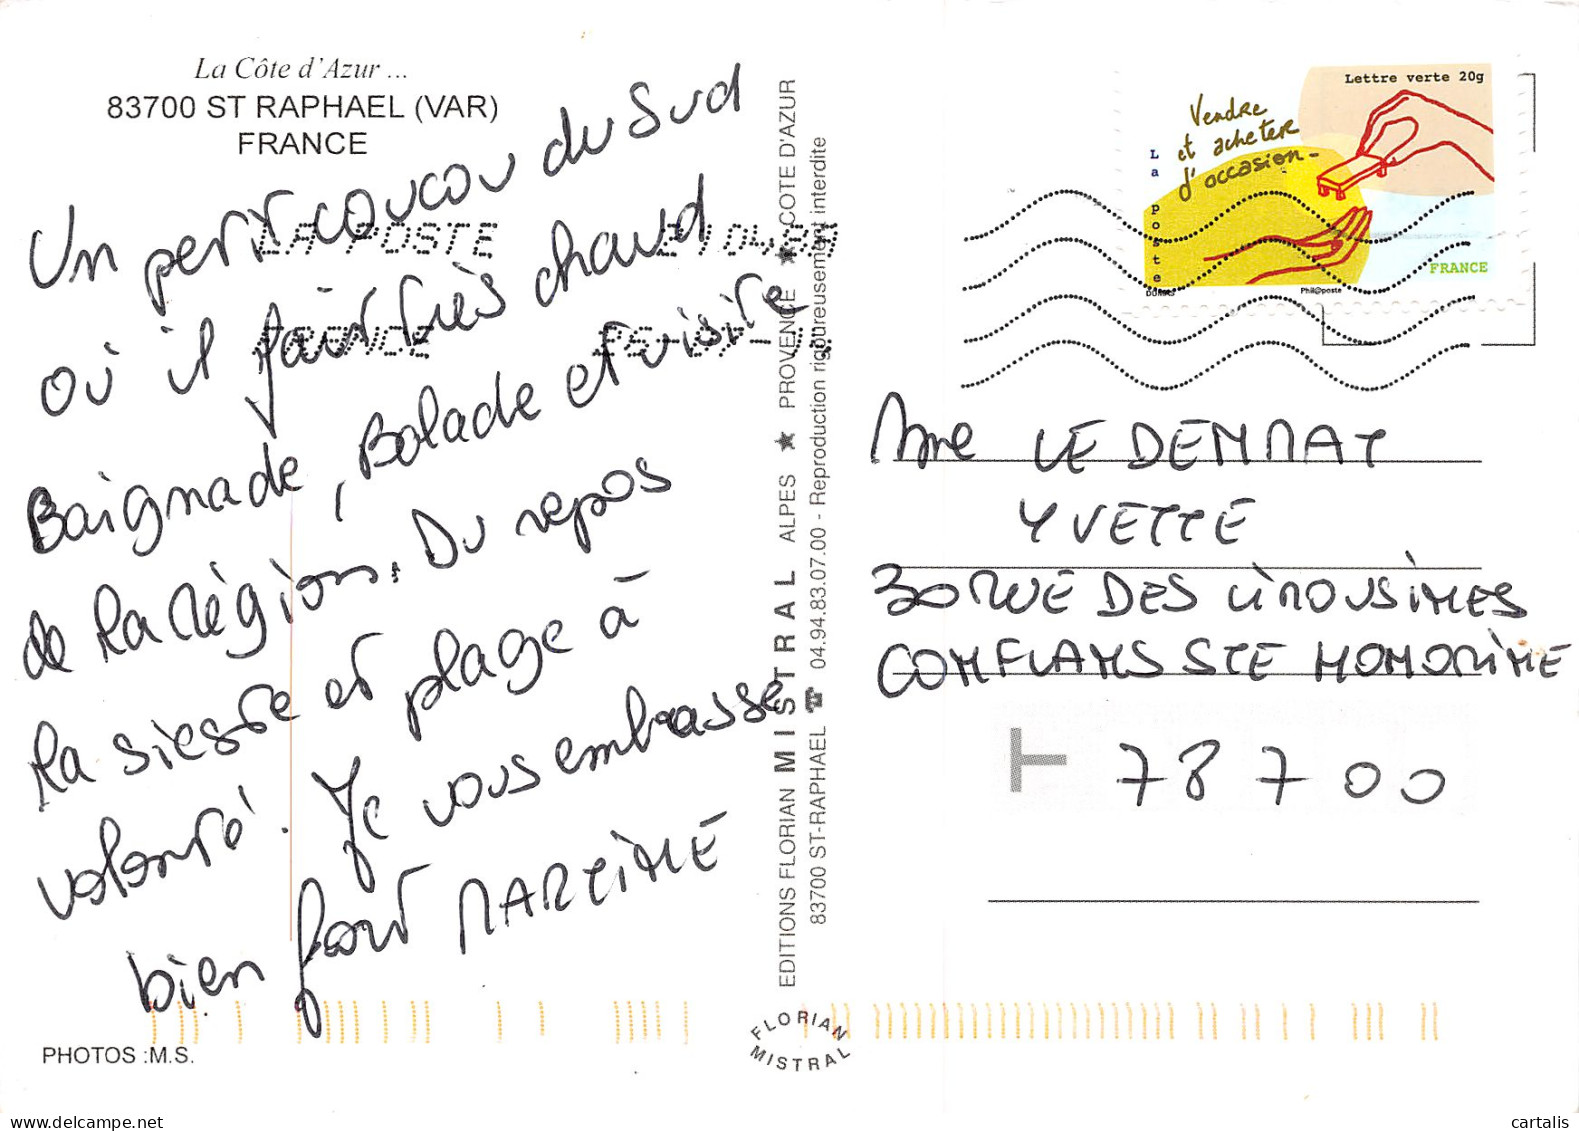 La Côte d'Azur ...
83700 ST RAPHAEL (VAR)
FRANCE
Un petit coucou du Sud
où il fait très chaud
Baignade, Balade et visite
de la région. Du repos
la sieste et plage à
volonté. Je vous embrasse
bien fort MARTINE
PHOTOS :M.S.
LA POSTE
FRANCE
EDITIONS FLORIAN MISTRAL ALPES ★ PROVENCE ★ COTE D'AZUR
83700 ST-RAPHAEL ☎ 04.94.83.07.00 - Reproduction rigoureusement interdite
FLORIAN
MISTRAL
Lettre verte 20g
Vendre
et acheter
d'occasion
La poste
FRANCE
Phil@poste
Mme LE DEMMAT
YVETTE
30 RUE DES LIROUSIMES
CONFLANS STE HONORINE
78700
delcampe.net
cartalis